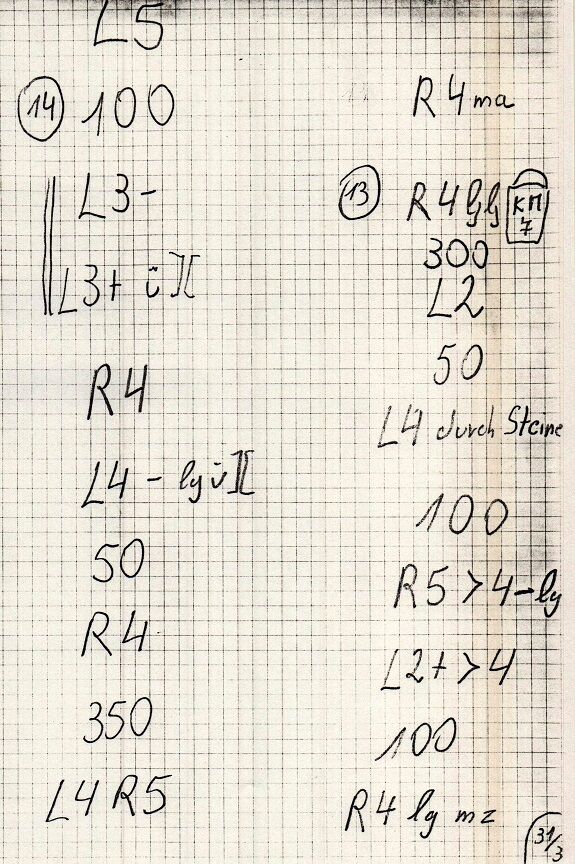 L5
14 100
L3-
L3+ ü ][
R4
L4 - lg ü ][
50
R4
350
L4 R5
R4 ma
13 R4 lg lg КП 7
300
L2
50
L4 durch Steine
100
R5 > 4 - lg
L2+ > 4
100
R4 lg mz
31/3